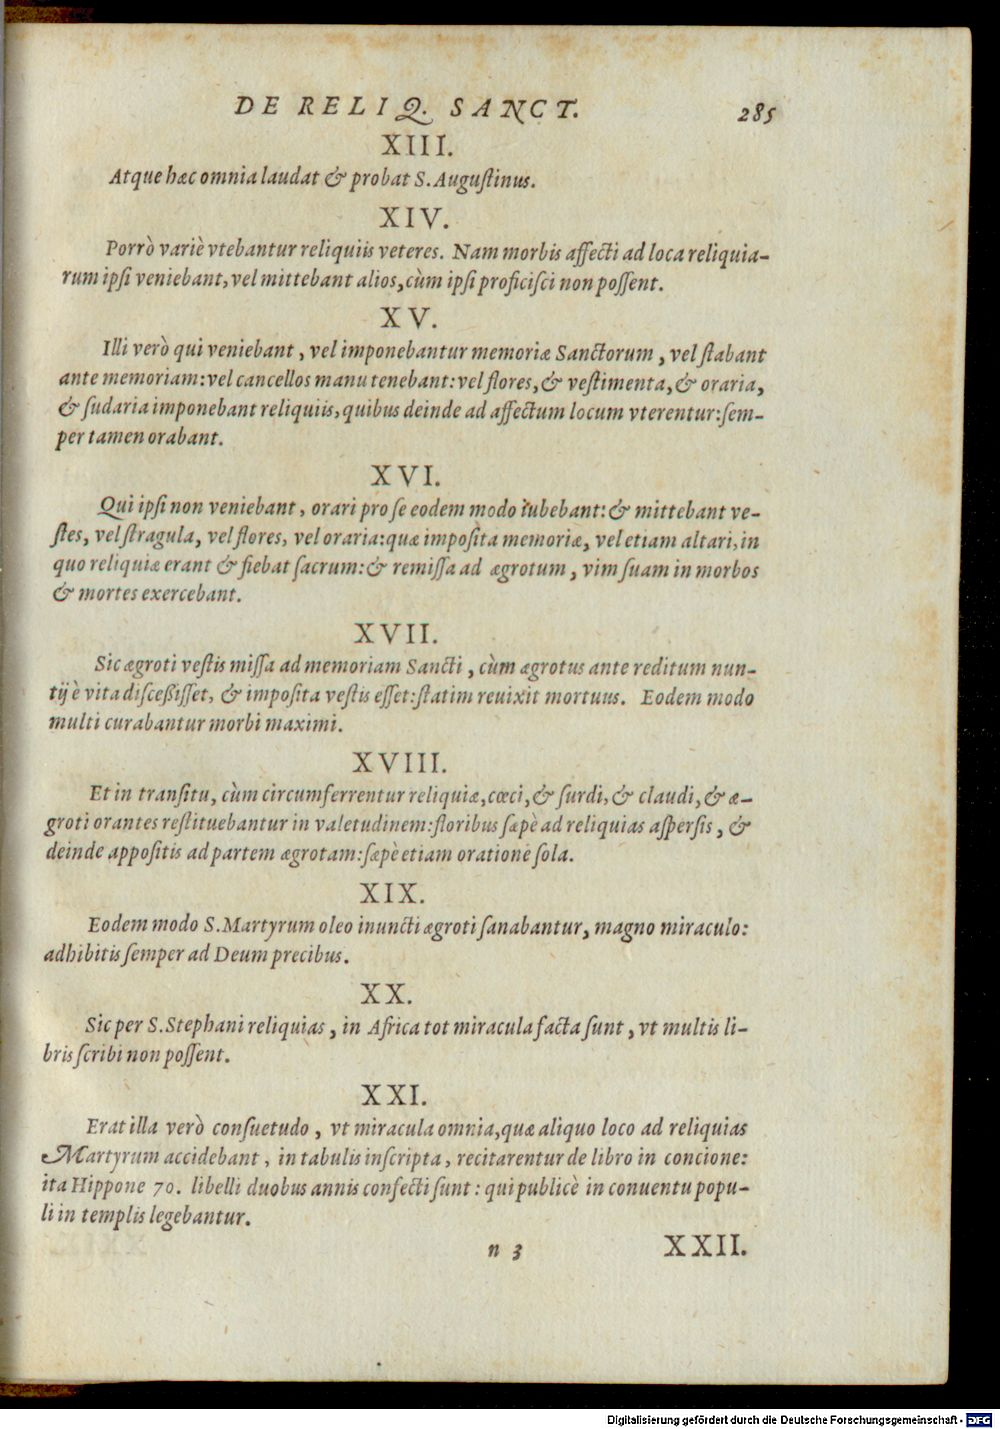 DE RELIQ. SANCT. 285
XIII.
Atque hæc omnia laudat & probat S. Auguſtinus.
XIV.
Porrò variè vtebantur reliquiis veteres. Nam morbis affecti ad loca reliquia-
rum ipſi veniebant, vel mittebant alios, cùm ipſi proficiſci non poſſent.
XV.
Illi verò qui veniebant, vel imponebantur memoriæ Sanctorum, vel ſtabant
ante memoriam: vel cancellos manu tenebant: vel flores, & veſtimenta, & oraria,
& ſudaria imponebant reliquiis, quibus deinde ad affectum locum vterentur: ſem-
per tamen orabant.
XVI.
Qui ipſi non veniebant, orari pro ſe eodem modo iubebant: & mittebant ve-
ſtes, vel ſtragula, vel flores, vel oraria: quæ impoſita memoriæ, vel etiam altari, in
quo reliquiæ erant & fiebat ſacrum: & remiſſa ad ægrotum, vim ſuam in morbos
& mortes exercebant.
XVII.
Sic ægroti veſtis miſſa ad memoriam Sancti, cùm ægrotus ante reditum nun-
tij è vita diſceßiſſet, & impoſita veſtis eſſet: ſtatim reuixit mortuus. Eodem modo
multi curabantur morbi maximi.
XVIII.
Et in tranſitu, cùm circumferrentur reliquiæ, cœci, & ſurdi, & claudi, & æ-
groti orantes reſtituebantur in valetudinem: floribus ſæpè ad reliquias aſperſis, &
deinde appoſitis ad partem ægrotam: ſæpè etiam oratione ſola.
XIX.
Eodem modo S. Martyrum oleo inuncti ægroti ſanabantur, magno miraculo:
adhibitis ſemper ad Deum precibus.
XX.
Sic per S. Stephani reliquias, in Africa tot miracula facta ſunt, vt multis li-
bris ſcribi non poſſent.
XXI.
Erat illa verò conſuetudo, vt miracula omnia, quæ aliquo loco ad reliquias
Martyrum accidebant, in tabulis inſcripta, recitarentur de libro in concione:
ita Hippone 70. libelli duobus annis confecti ſunt: qui publicè in conuentu popu-
li in templis legebantur.
n 3 XXII.
Digitalisierung gefördert durch die Deutsche Forschungsgemeinschaft - DFG